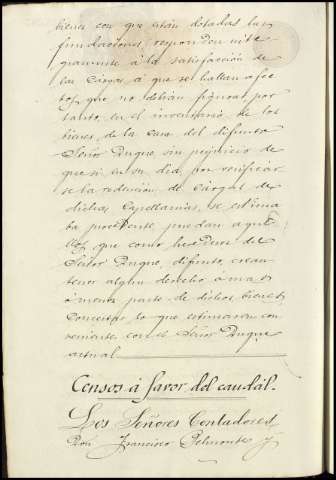 bienes con que están dotadas las
fundaciones, responden inte
gramente á la satisfaccion de
las cargas á que se hallan afec
tos, que no debian figurar por
tanto, en el inventario de los
bienes de la casa del difunto
Señor Duque, sin perjuicio de
que si en su dia por verificar
se la redencion de cargas de
dichas Capellanías, se estima
ba procedente puedan aque
llos que como herederos del
Señor Duque, difunto, crean
tener algun derecho á mas
ó menos parte de dichos bienes,
lo que estimaren con
veniente, con el Señor Duque
actual
Censos á favor del caudal.
Los Señores Contadores
Don Francisco Belmonte y